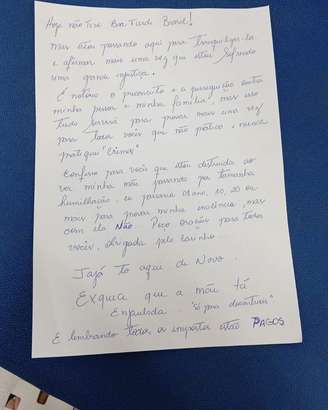 Hoje não Tive Boa Tarde Brasil!
Mas estou passando aqui para tranquilizar-los
e afirmar mais uma vez que estou Sofrendo
uma grande injustiça.
É notório o preconceito e a perseguição contra
minha pessoa e minha família, mas isso
tudo servirá para provar mais uma vez
para todos vocês que não pratico, e nunca
pratiquei "crimes"
Confesso para vocês que estou destruída ao
ver minha mãe passando por tamanha
humilhação, eu passaria 01 ano, 10, 20 ou
mais para provar minha inocência, mas
sem ela Não. Peço orações para todos
vocês, obrigada pelo carinho.
Jajá tô aqui de Novo.
Esqueca que a mãe tá
Enjaulada "só pra descontrair"
E lembrando todos os impostos estão PAGOS